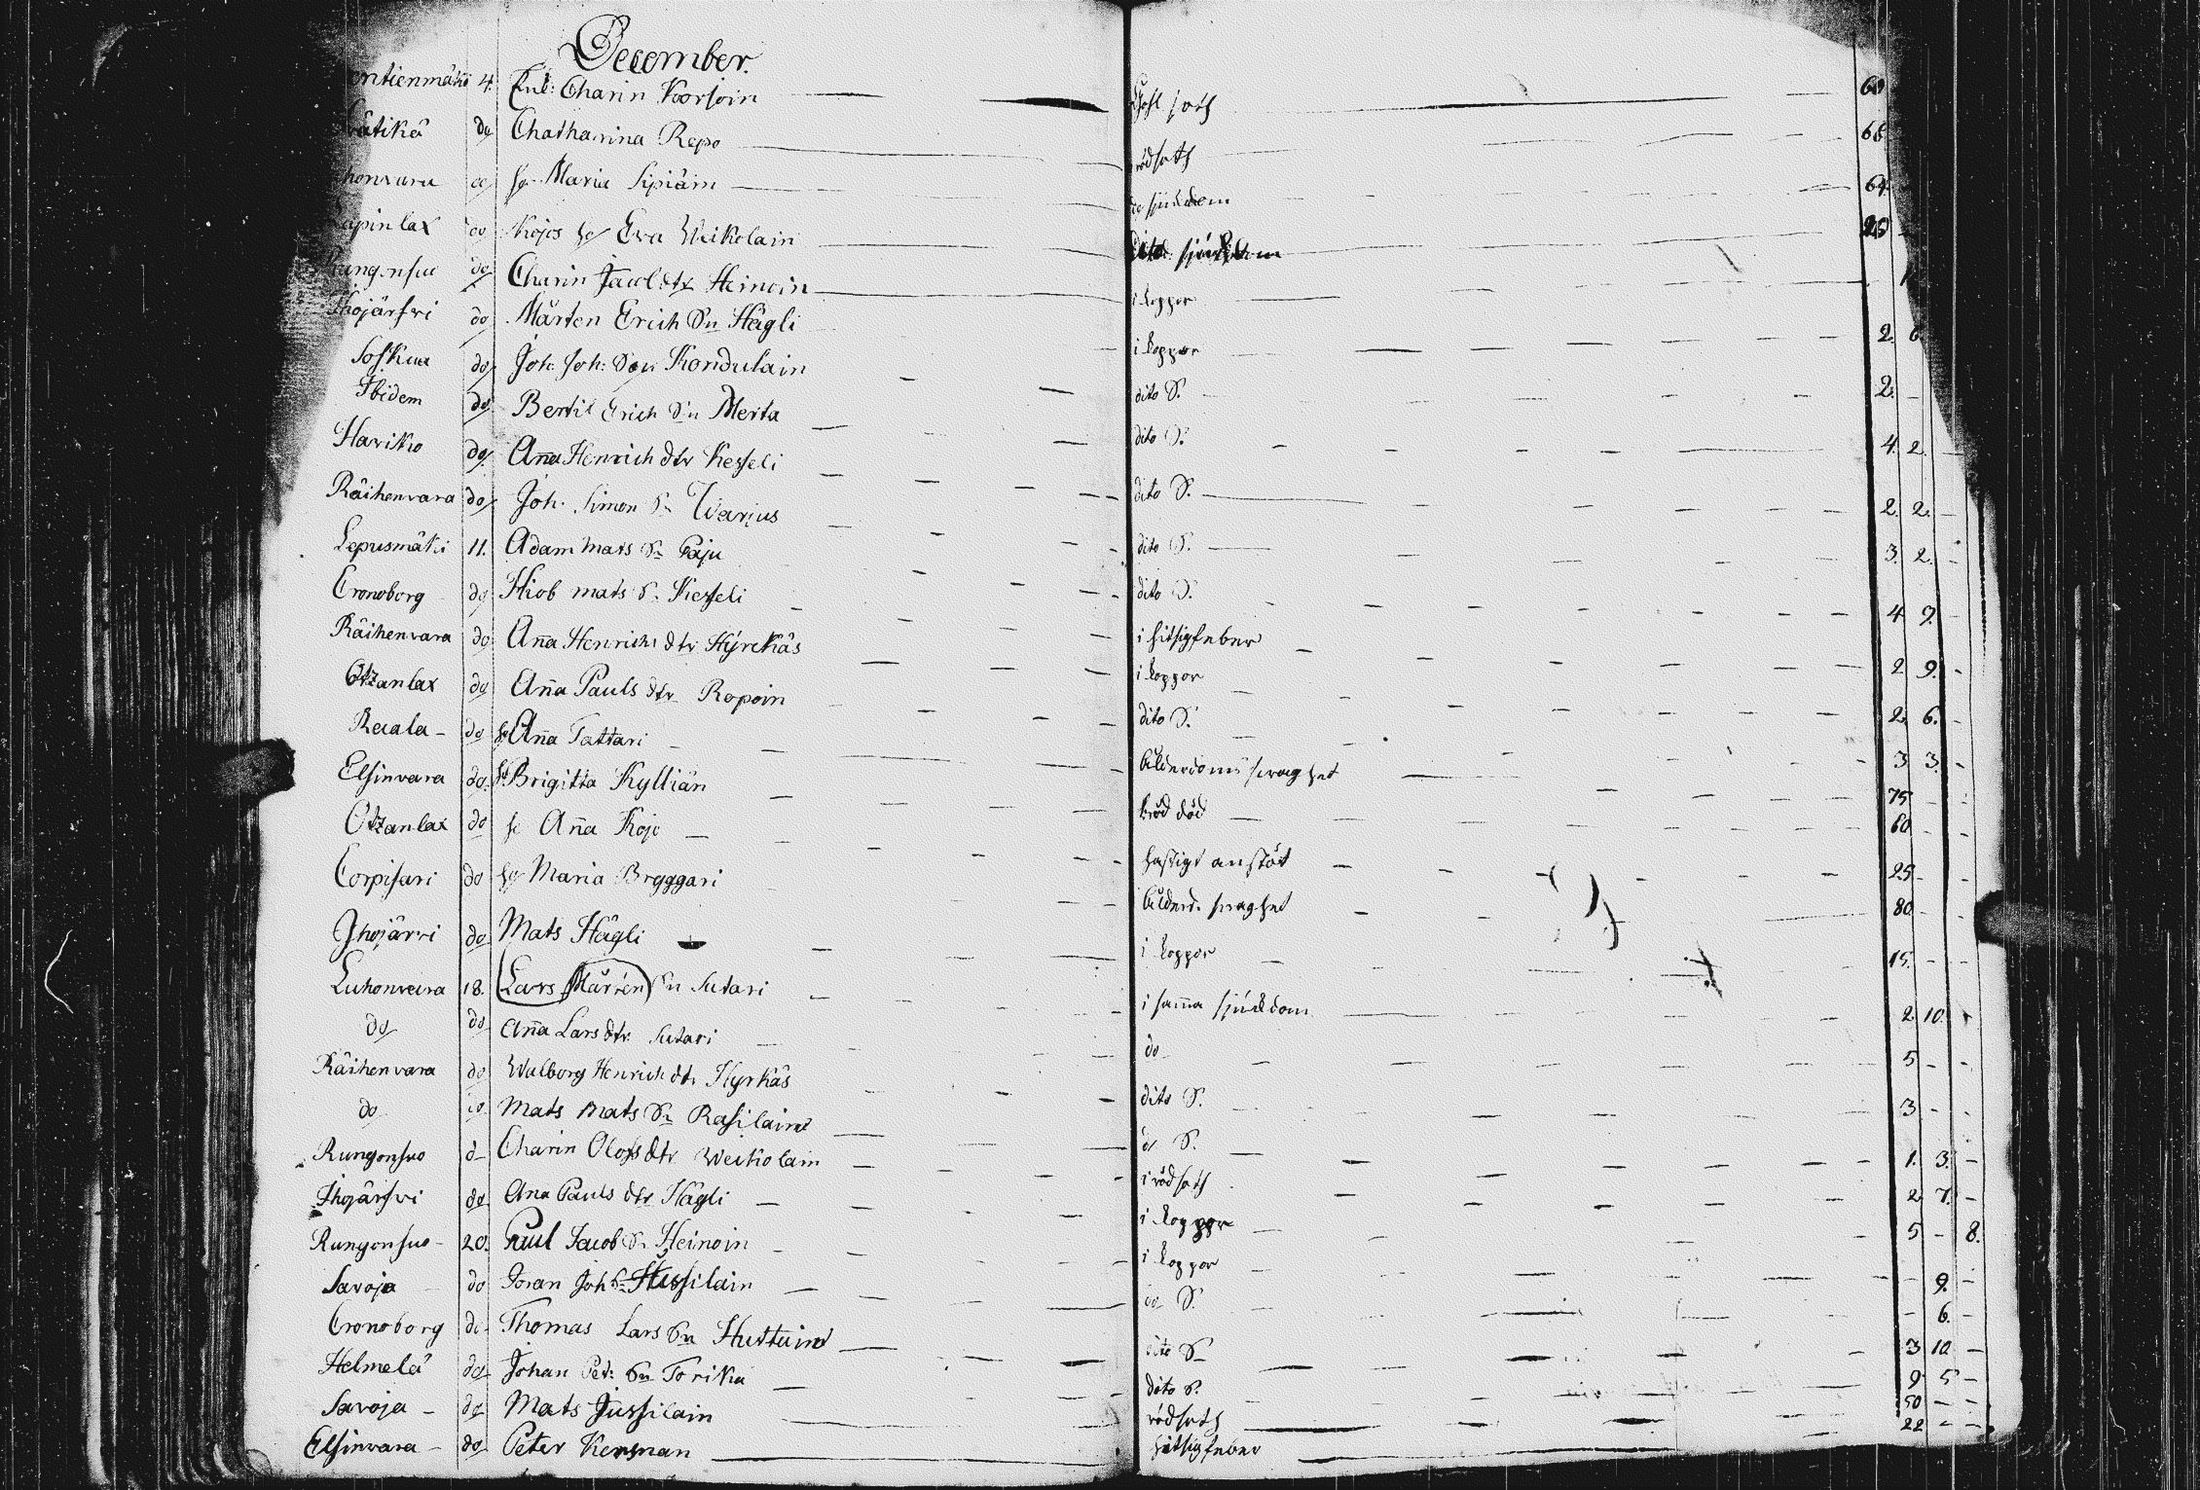 December.
4. Enk: Charin Korsoin 60
do Chatharina Repo rödsoth 68
do hu Maria Sipiäin do sjukdom 64
do Kojos hu Eva Weikolain dito sjukdom
do Charin Jacobs dtr Heinoin i koppor
do Mårten Erich Sn Hägli i koppor 2 6
Soskua do Joh: Joh: Son Kondulain dito S. 2.
Ibidem do Bertil Erich Sn Merta dito S. 4. 2.
Hariko do Aña Henrich dtr Kesseli dito S. 2. 2. -
Räihenvara do Joh. Simon Sn Warius dito S. 3. 2. -
Lepusmäki 11. Adam Mats Sn Paju dito S. 4 9. -
Cronoborg do Hiob mats S. Kesseli 2 9. -
Räihenvara do Aña Henrichs dtr Hyrckäs i hitsigfeber 2. 6. -
Otzanlax do Aña Pauls dtr Ropoin i koppor 3 3. -
Recala - do hu Aña Tattari dito S. 75 - -
Elsinvara do. hu Brigitta Kylliän Ålderdoms swaghet 60 - -
Otzanlax do hu Aña Kojo bråd död 25 - -
Corpisari do hu Maria Bryggari hastigt anstöt 80 - -
Ihojärvi do Mats Hägli Ålderd. swaghet 15. - -
Luhonvara 18. Lars Mårten Sn Sutari i koppor 2. 10.
do do Aña Lars dtr Sutari i saña sjukdom 5 - -
Räihenvara do Walborg Henrich dtr Hyrkäs do 3 - -
do do Mats Mats Sn Rasilain dito S. 1. 3. -
Rungonsuo do Charin Olofs dtr Weikolain do S. 2 7. -
Ihojärfvi do Ana Pauls dtr Hägli i rödsoth 5 - 8.
Rungonsuo - 20. Paul Jacob Sn Heinoin i koppor - 9. -
Savoja do Joran Joh Sn Hussilain i koppor - 6. -
Cronoborg do Thomas Lars Sn Huttuin do S. 3 10 -
Helmelä do Johan Pet: Sn Torika dito S. 9 5 -
Savoja - do Mats Jussilain rödsoth 50 - -
Elsinvara - do Peter Kensman hitsigfeber 22 - -